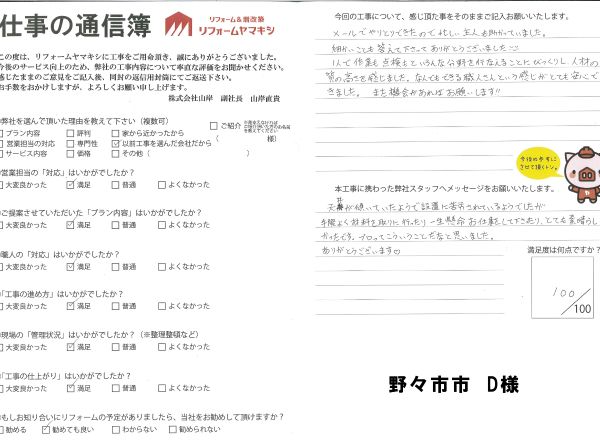 仕事の通信簿
リフォーム&増改築
リフォームヤマキシ
この度は、リフォームヤマキシに工事をご用命頂き、誠にありがとうございました。
今後のサービス向上のため、弊社の工事内容について率直な評価をお聞かせください。
感じたままのご意見をご記入後、同封の返信用封筒にてご返送下さい。
お手数をおかけしますが、よろしくお願い申し上げます。
株式会社山岸 副社長 山岸直貴
弊社を選んで頂いた理由を教えて下さい(複数可)
プラン内容 評判 家から近かったから
営業担当の対応 専門性 以前工事を遣んだ会社だから
サービス内容 価格 その他(
ご紹介
様)
営業担当の「対応」はいかがでしたか?
大変良かった 満足 普通 よくなかった
ご提案させていただいた「プラン内容」はいかがでしたか?
大変良かった 満足 普通 よくなかった
職人の「対応」はいかがでしたか?
大変良かった 満足 普通 よくなかった
「工事の進め方」はいかがでしたか?
大変良かった 満足 普通 よくなかった
現場の「管理状況」はいかがでしたか?(※整理整頓など)
大変良かった 満足 普通 よくなかった
「工事の仕上がり」はいかがでしたか?
大変良かった 満足 普通 よくなかった
もしお知り合いにリフォームの予定がありましたら、当社をお勧めして頂けますか?
勧める 勧めても良い わからない 勧められない
今回の工事について、感じた事をそのままご記入お願いいたします。
メールでやりとりできたので忙しい主人も助かっていました。
細かいことも答えて下さってありがとうございました
1人で作業も点検といろんな分野を行なえることにびっくりし、人材の
質の高さを感じました。なんでもできる職人さんという感じがとても安心で
きました。また機会があればお願いします!!
今後の参考に
させて頂くトン。
本工事に携わった弊社スタッフへメッセージをお願いいたします。
天井が傾いていたようで設置に苦労されているようでしたが
手際よく材料を取りに行ったり一生懸命お仕事して下さり、とても素晴らし
かったです。プロってこういうことだなと思いました。
ありがとうございます
満足度は何点ですか?
100
/100
野々市市 D様